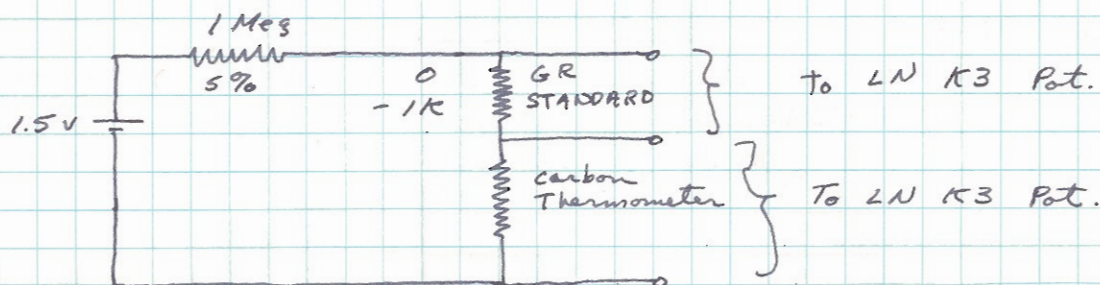 1 Meg
5%
0
-1K
GR
STANDARD
To LN K3 Pot.
1.5 v
carbon
Thermometer
To LN K3 Pot.